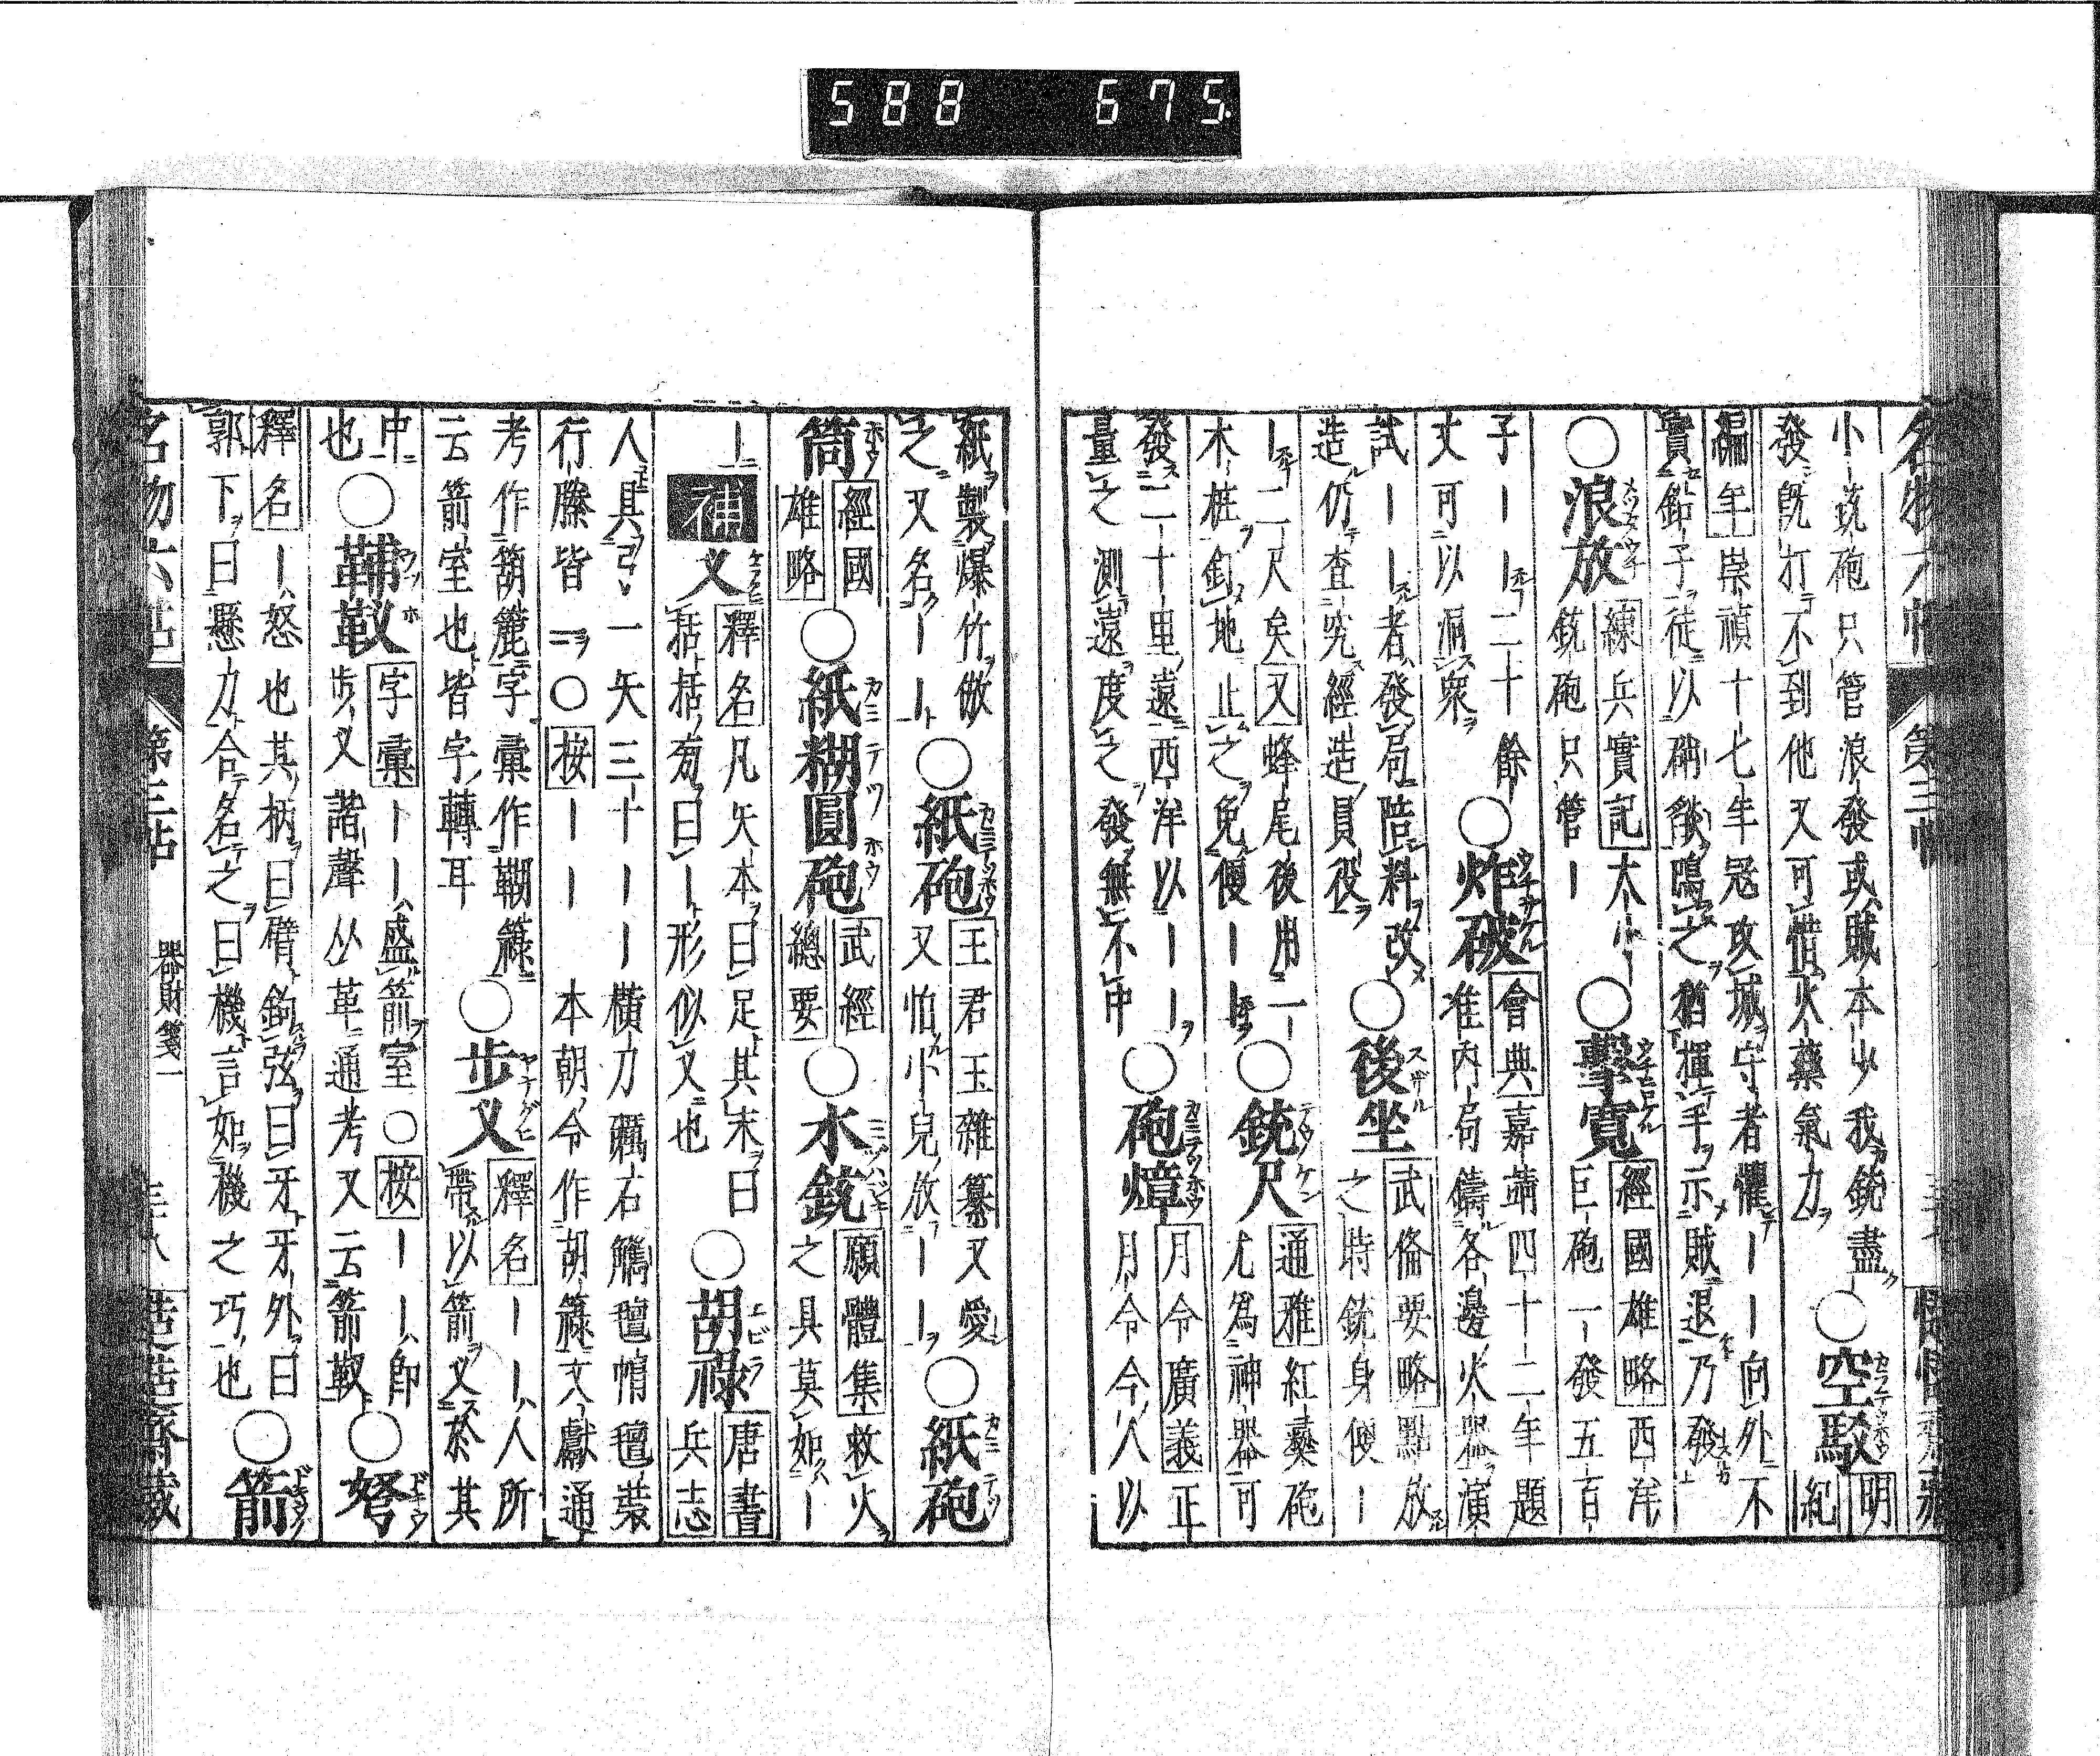 588 675
名物六帖 第三帖
小｜銃砲只管浪發或賊本少我銃盡
發既打不到他又可惜火藥氣力
○空駁 明
紀
編年 崇禎十七年冠攻城守者懼｜｜向外不
實鉛子徒以硝燄鳴之猶揮手示賊退乃發
○浪放
練兵實記 大小｜
銃砲只管｜
○擊寬
經國雄略 西洋
巨砲一發五百
子｜｜二十餘
丈可以洞衆
○炸破
會典 嘉靖四十二年題
准丙局鑄各邊火器演
試｜｜者發局陪料改
造仍查究經造員役
○後坐
武僃要略 點放
之時銃身便｜
｜二尺矣 又 蜂尾後用一｜
木桩釘地止之免便｜｜
○銃尺
通雅 紅彝砲
尤爲神器可
發二十里遠西洋以｜｜
量之測遠度之發無不中
○砲㷡
月令廣義 正
月令今人以
紙製爆竹倣
之又名｜｜
○紙砲
王君玉雜纂 又愛
又怕小兒放｜｜
○紙砲
筒
經國
雄略
○紙糊圓砲
武經
總要
○水銃
願體集 救火
之具莫如｜
｜
補 叉
釋名 凡矢本曰足其末曰
栝栝旁曰｜形似叉也
○胡祿
唐書
兵志
人具弓一矢三十｜｜｜橫刀礪石觿氊帽氊裝
行縢皆一 ○ 按 ｜｜本朝令作胡籙文獻通
考作箶簏字彙作䩮簶
云箭室也皆字轉耳
○步叉
釋名 ｜｜人所
帶以箭叉於其
中
也
○鞴靫
字彙 ｜｜盛箭室 ○ 按 ｜｜即
步叉諧聲从革通考又云箭靫
○弩
釋名 ｜怒也其柄曰臂鉤弦曰牙牙外曰
郭下曰懸刀合名之曰機言如機之巧也
○箭
名物六帖 第三帖 器財箋一